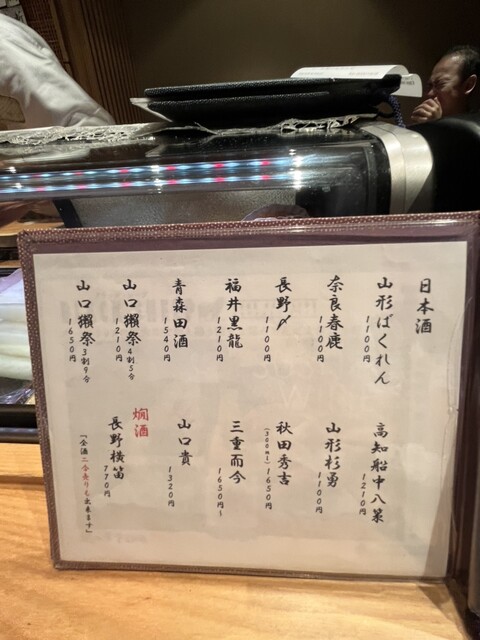 日本酒
山形ばくれん
1100円
奈良春鹿
1100円
長野〆
1100円
福井黒龍
1210円
青森田酒
1540円
山口獺祭4割5分
1210円
山口獺祭3割9分
1650円
高知船中八策
1210円
山形杉勇
1100円
秋田秀吉
(300ml) 1650円
三重而今
1650円～
山口貴
1320円
燗酒
長野横笛
770円
「全酒二合売りも出来ます」